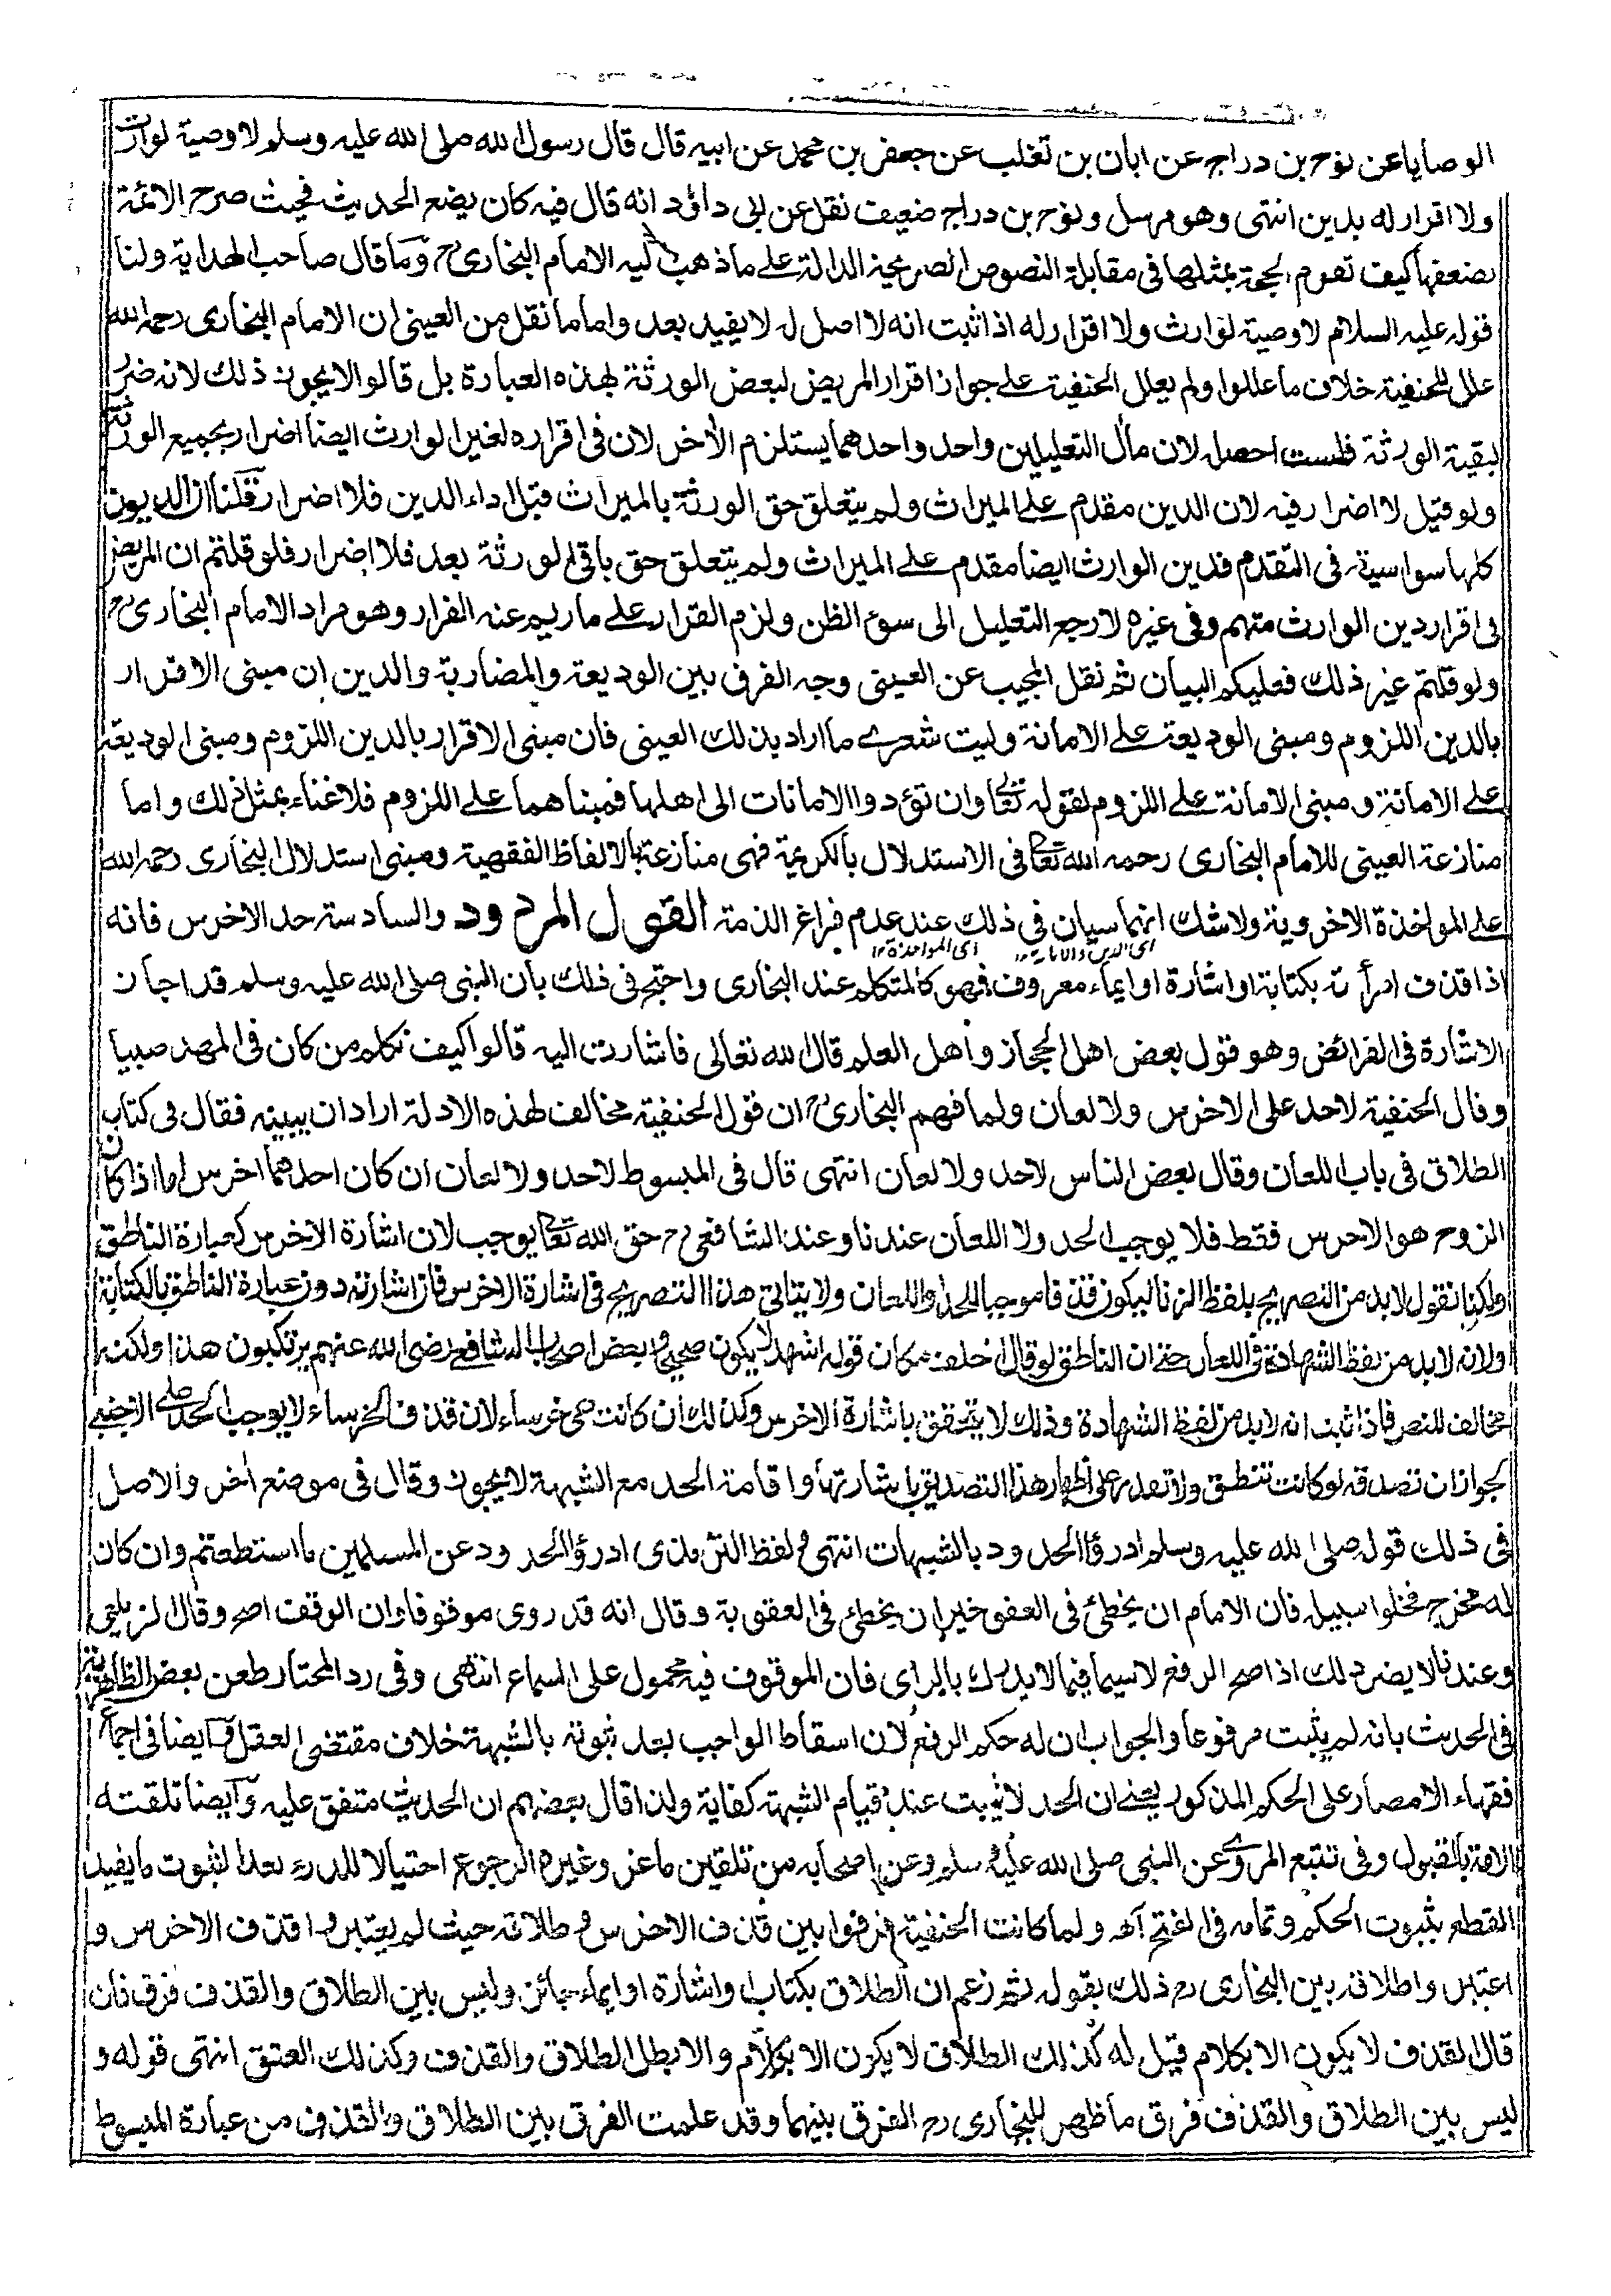 الوصايا عن نوح بن دراج عن ابان بن تغلب عن جعفر بن محمد عن ابيه قال قال رسول الله صلى الله عليه وسلم لا وصية لوارث
ولا اقرار له بدين انتهى وهو مرسل ونوح بن دراج ضعيف نقل عن ابى داؤد انه قال فيه كان يضع الحديث فحيث صرح الائمة
بضعفها كيف تقوم الحجة بمثلها فى مقابلة النصوص الصريحة الدالة على ما ذهب اليه الامام البخارى رح وما قال صاحب الهداية ولنا
قوله عليه السلام لا وصية لوارث ولا اقرار له اذا ثبت انه لا اصل له لا يفيد بعد واما ما نقل من العينى ان الامام البخارى رحمه الله
علل للحنفية خلاف ما عللوا ولم يعلل الحنفية على جواز اقرار المريض لبعض الورثة بهذه العبارة بل قالوا لا يجوز ذلك لانه ضرر
لبقية الورثة فلست احصله لان مآل التعليلين واحد واحدهما يستلزم الأخر لان فى اقراره لغير الوارث ايضا اضرار بجميع الورثة
ولو قيل لا اضرار فيه لان الدين مقدم على الميراث ولم يتعلق حق الورثة بالميراث قبل اداء الدين فلا اضرار قلنا ان الديون
كلها سواسية فى التقدم فدين الوارث ايضا مقدم على الميراث ولم يتعلق حق باقى الورثة بعد فلا اضرار فلو قلتم ان المريض
فى اقرار دين الوارث متهم وفى غيره لا رجع التعليل الى سوء الظن ولزم القرار على ما ريم عنه الفرار وهو مراد الامام البخارى رح
ولو قلتم غير ذلك فعليكم البيان ثم نقل المجيب عن العينى وجه الفرق بين الوديعة والمضاربة والدين ان مبنى الاقرار
بالدين اللزوم ومبنى الوديعة على الامانة وليت شعرى ما اراد بذلك العينى فان مبنى الاقرار بالدين اللزوم ومبنى الوديعة
على الامانة ومبنى الامانة على اللزوم لقوله تعالى وان تؤدوا الامانات الى اهلها فمبناهما على اللزوم فلا غناء بمثل ذلك واما
منازعة العينى للامام البخارى رحمه الله تعالى فى الاستدلال بالكريمة فهى منازعة بالالفاظ الفقهية ومبنى استدلال البخارى رحمه الله
على المواخذة الاخروية ولا شك انهما سيان فى ذلك عند عدم فراغ الذمة القول المردود والسادسة حد الاخرس فانه
اى الدين والامانة ١٢ اى المواخذة ١٢
اذا قذف امرأته بكتابة او اشارة او ايماء معروف فهو كالمتكلم عند البخارى واحتج فى ذلك بان النبى صلى الله عليه وسلم قد اجاز
الاشارة فى الفرائض وهو قول بعض اهل الحجاز واهل العلم قال الله تعالى فاشارت اليه قالوا كيف نكلم من كان فى المهد صبيا
وقال الحنفية لا حد على الاخرس ولا لعان ولما فهم البخارى رح ان قول الحنفية مخالف لهذه الادلة اراد ان يبينه فقال فى كتاب
الطلاق فى باب اللعان وقال بعض الناس لا حد ولا لعان انتهى قال فى المبسوط لا حد ولا لعان ان كان احدهما اخرس اما اذا كان
الزوج هو الاخرس فقط فلا يوجب الحد ولا اللعان عندنا وعند الشافعى رح حق الله تعالى يوجب لان اشارة الاخرس كعبارة الناطق
ولكنا نقول لا بد من التصريح بلفظ الزنا ليكون قذفا موجبا للحد واللعان ولا يتاتى هذا التصريح فى اشارة الاخرس فان اشارته دون عبارة الناطق بالكتابة
ولانه لا بد من لفظ الشهادة فى اللعان حتى ان الناطق لو قال احلف مكان قوله اشهد لا يكون صحيحا وبعض اصحاب الشافعى رضى الله عنهم يرتكبون هذا ولكنه
مخالف للنص فاذا ثبت انه لا بد من لفظ الشهادة وذلك لا يتحقق باشارة الاخرس وكذلك ان كانت هى خرساء لان قذف الخرساء لا يوجب الحد على الاجنبى
لجواز ان تصدقه لو كانت تنطق ولا تقدر على اظهار هذا التصديق باشارتها واقامة الحد مع الشبهة لا يجوز وقال فى موضع أخر والاصل
فى ذلك قوله صلى الله عليه وسلم ادرؤا الحدود بالشبهات انتهى ولفظ الترمذى ادرؤا الحدود عن المسلمين ما استطعتم وان كان
له مخرج فخلوا سبيله فان الامام ان يخطئ فى العفو خير ان يخطئ فى العقوبة وقال انه قد روى موقوفا وان الوقف اصح وقال الزيلعى
وعندنا لا يضر ذلك اذا صح الرفع لا سيما فيما لا يدرك بالراى فان الموقوف فيه محمول على السماع انتهى وفى رد المحتار طعن بعض الظاهرية
فى الحديث بانه لم يثبت مرفوعا والجواب ان له حكم الرفع لان اسقاط الواجب بعد ثبوته بالشبهة خلاف مقتضى العقل وايضا فى اجماع
فقهاء الامصار على الحكم المذكور يعنى ان الحد لا يثبت عند قيام الشبهة كفاية ولذا قال بعضهم ان الحديث متفق عليه وايضا تلقته
الامة بالقبول وفى تتبع المروى عن النبى صلى الله عليه وسلم وعن اصحابه من تلقين ماعز وغيره الرجوع احتيالا للدرء بعد الثبوت ما يفيد
القطع بثبوت الحكم وتمامه فى الفتح اه ولما كانت الحنفية فرقوا بين قذف الاخرس وطلاقه حيث لم يعتبروا قذف الاخرس و
اعتبروا طلاقه بين البخارى رح ذلك بقوله ثم زعم ان الطلاق بكتاب واشارة او ايماء جائز وليس بين الطلاق والقذف فرق فان
قال القذف لا يكون الا بكلام قيل له كذلك الطلاق لا يكون الا بكلام والا بطل الطلاق والقذف وكذلك العتق انتهى قوله و
ليس بين الطلاق والقذف فرق ما ظهر للبخارى رح الفرق بينهما وقد علمت الفرق بين الطلاق والقذف من عبارة المبسوط